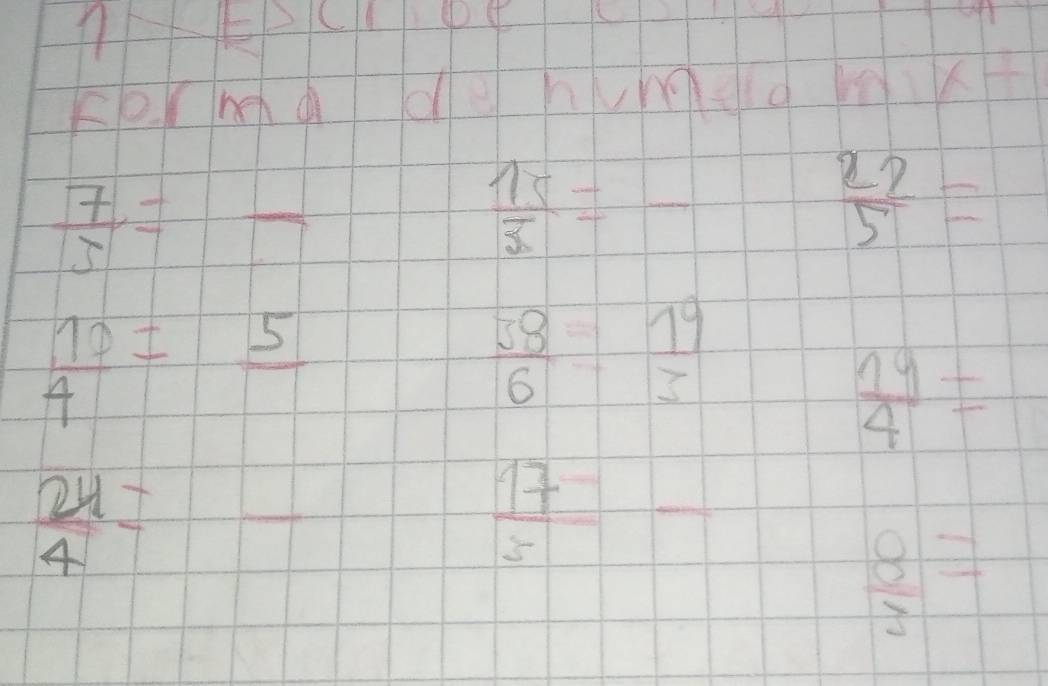 1 Escribe
Forma de numero mixt
7/3 = — 15/3 = — 22/5 =
10/4 = 5/ 38/6 = 19/3
19/4 =
24/4 = — 17/3 = —
8/3 =